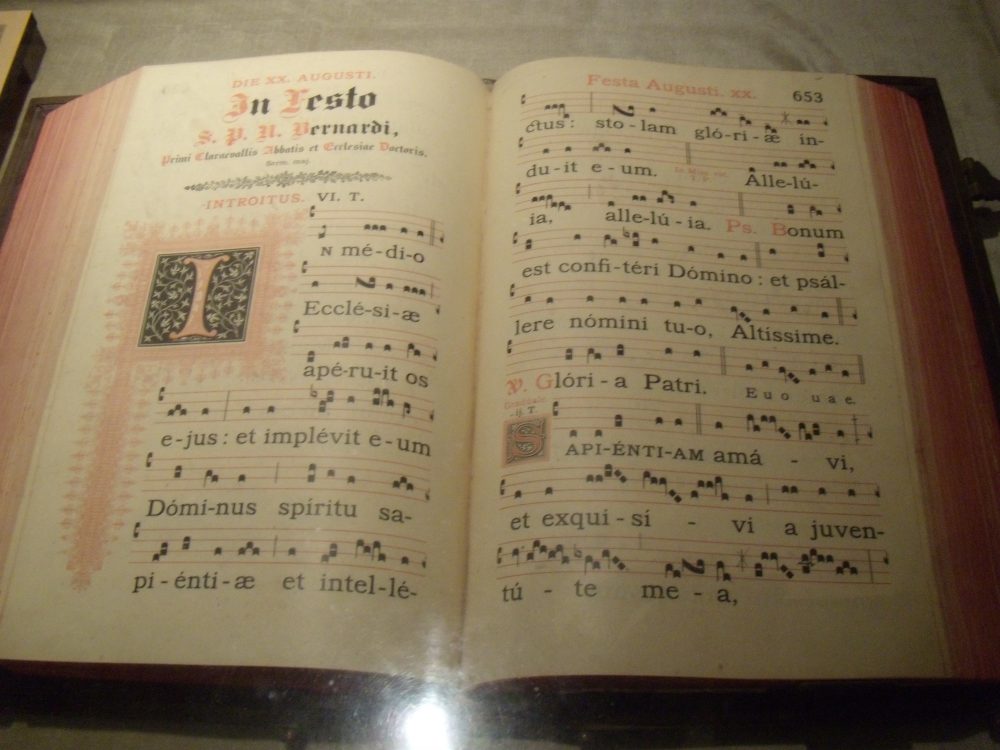 DIE XX. AUGUSTI.
In Festo
S. P. N. Bernardi,
Primi Claraevallis Abbatis et Ecclesiae Doctoris.
Serm. maj.
INTROITUS. VI. T.
IN mé-di-o
Ecclé-si-æ
apé-ru-it os
e-jus : et implévit e-um
Dómi-nus spíritu sa-
pi-énti-æ et intel-lé-
Festa Augusti. XX. 653
ctus: sto-lam gló-ri-æ ín-
du-it e-um. Alle-lú-
ia, alle-lú-ia. Ps. Bonum
est confi-téri Dómino : et psál-
lere nómini tu-o, Altíssime.
℣. Glóri-a Patri. Euouae.
Graduale
ij. T.
SAPI-ÉNTI-AM amá - vi,
et exqui-sí - vi a juven-
tú - te me - a,